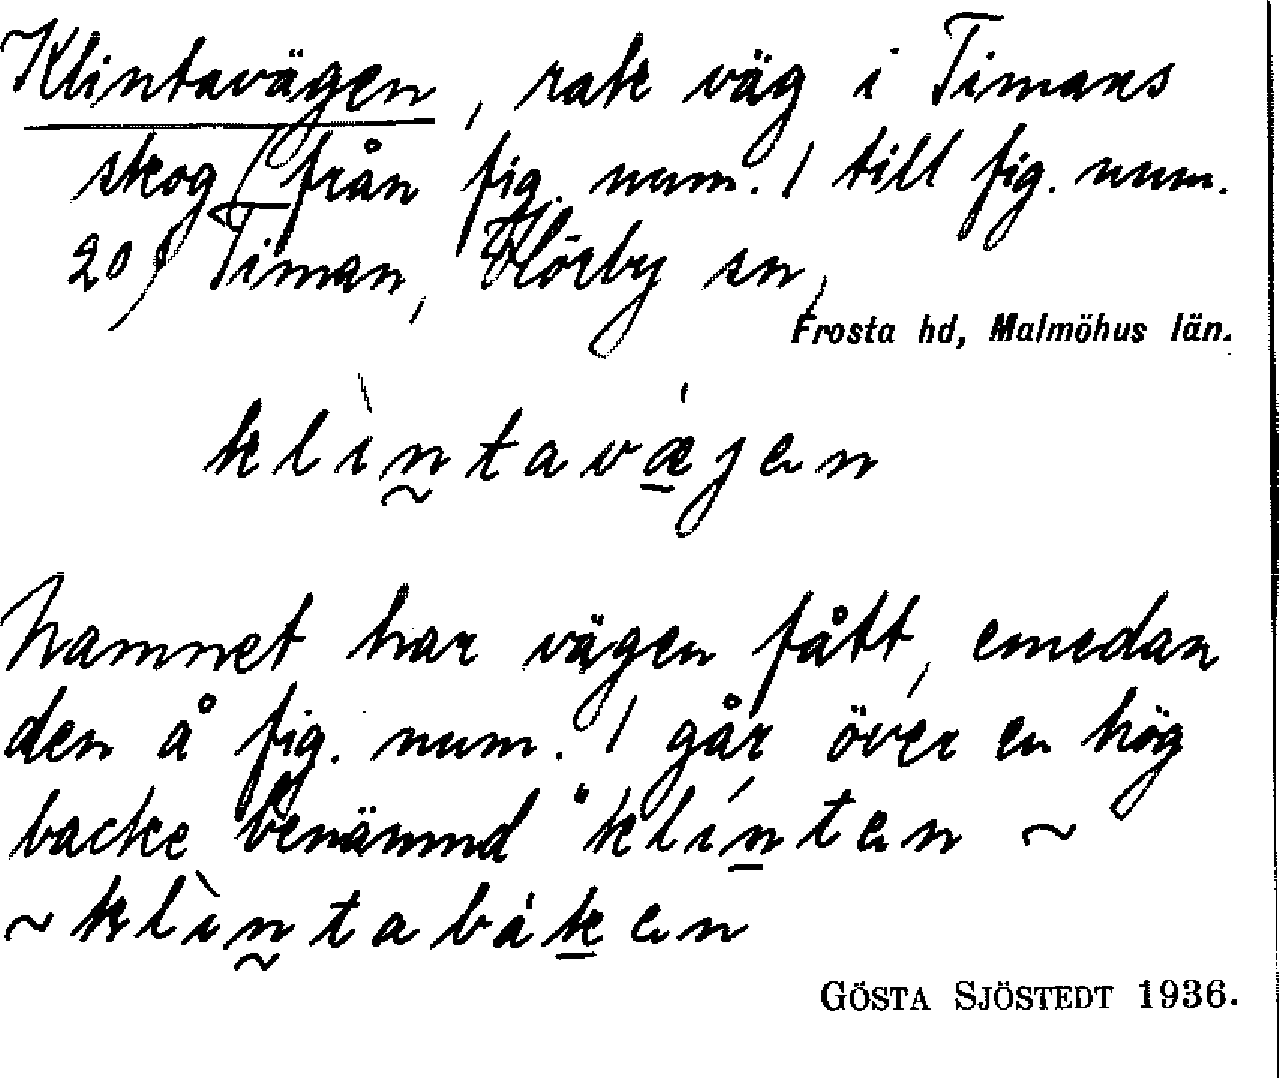 Klintavägen, rak väg i Timans
skog (från fig. num. 1 till fig. num.
20) Timan, Hörby sn,
Frosta hd, Malmöhus län.
klìn̰tavǽ̱jen
Namnet har vägen fått, emedan
den å fig. num. 1 går över en hög
backe benämnd "klíṉten ~
~ klìn̰tabáḵen
GÖSTA SJÖSTEDT 1936.